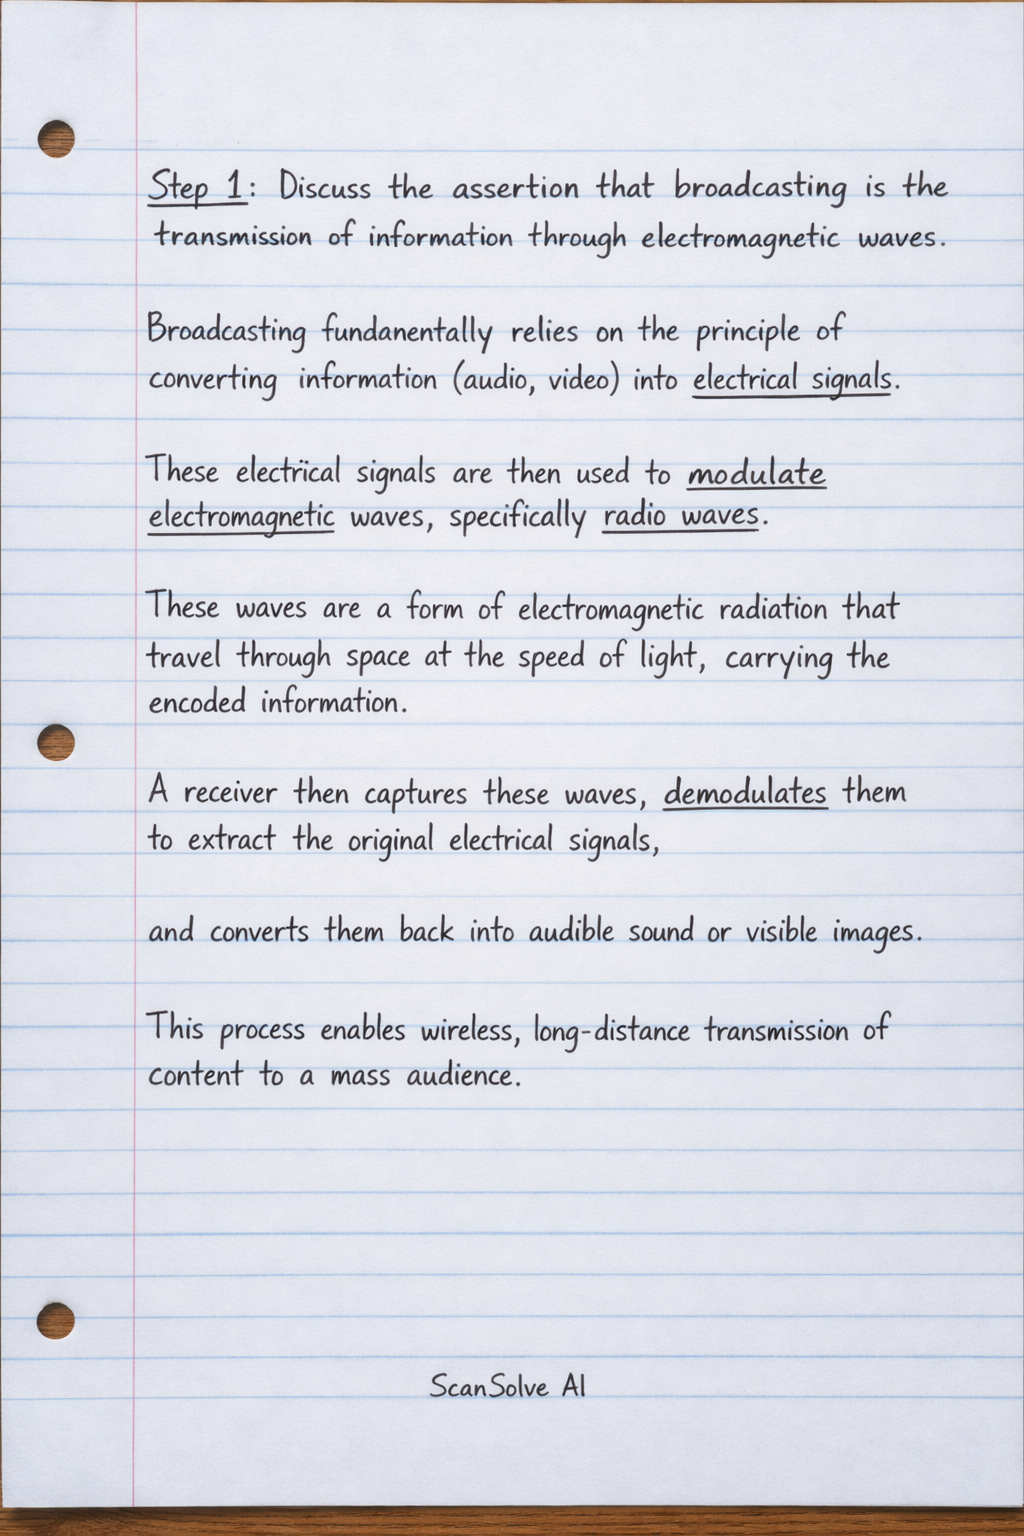 Step 1: Discuss the assertion that broadcasting is the
transmission of information through electromagnetic waves.
Broadcasting fundanentally relies on the principle of
converting information (audio, video) into electrical signals.
These electrical signals are then used to modulate
electromagnetic waves, specifically radio waves.
These waves are a form of electromagnetic radiation that
travel through space at the speed of light, carrying the
encoded information.
A receiver then captures these waves, demodulates them
to extract the original electrical signals,
and converts them back into audible sound or visible images.
This process enables wireless, long-distance transmission of
content to a mass audience.
ScanSolve AI